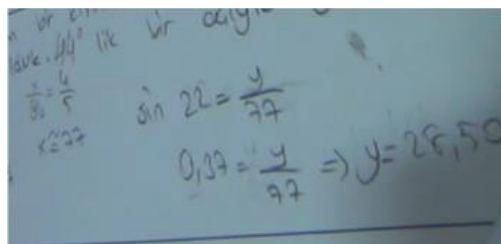 bir
44° lik bir açıyla
= 4/5
x≅77
sin 22 = y/77
0,37 = y/77 ⇒ y = 28,50